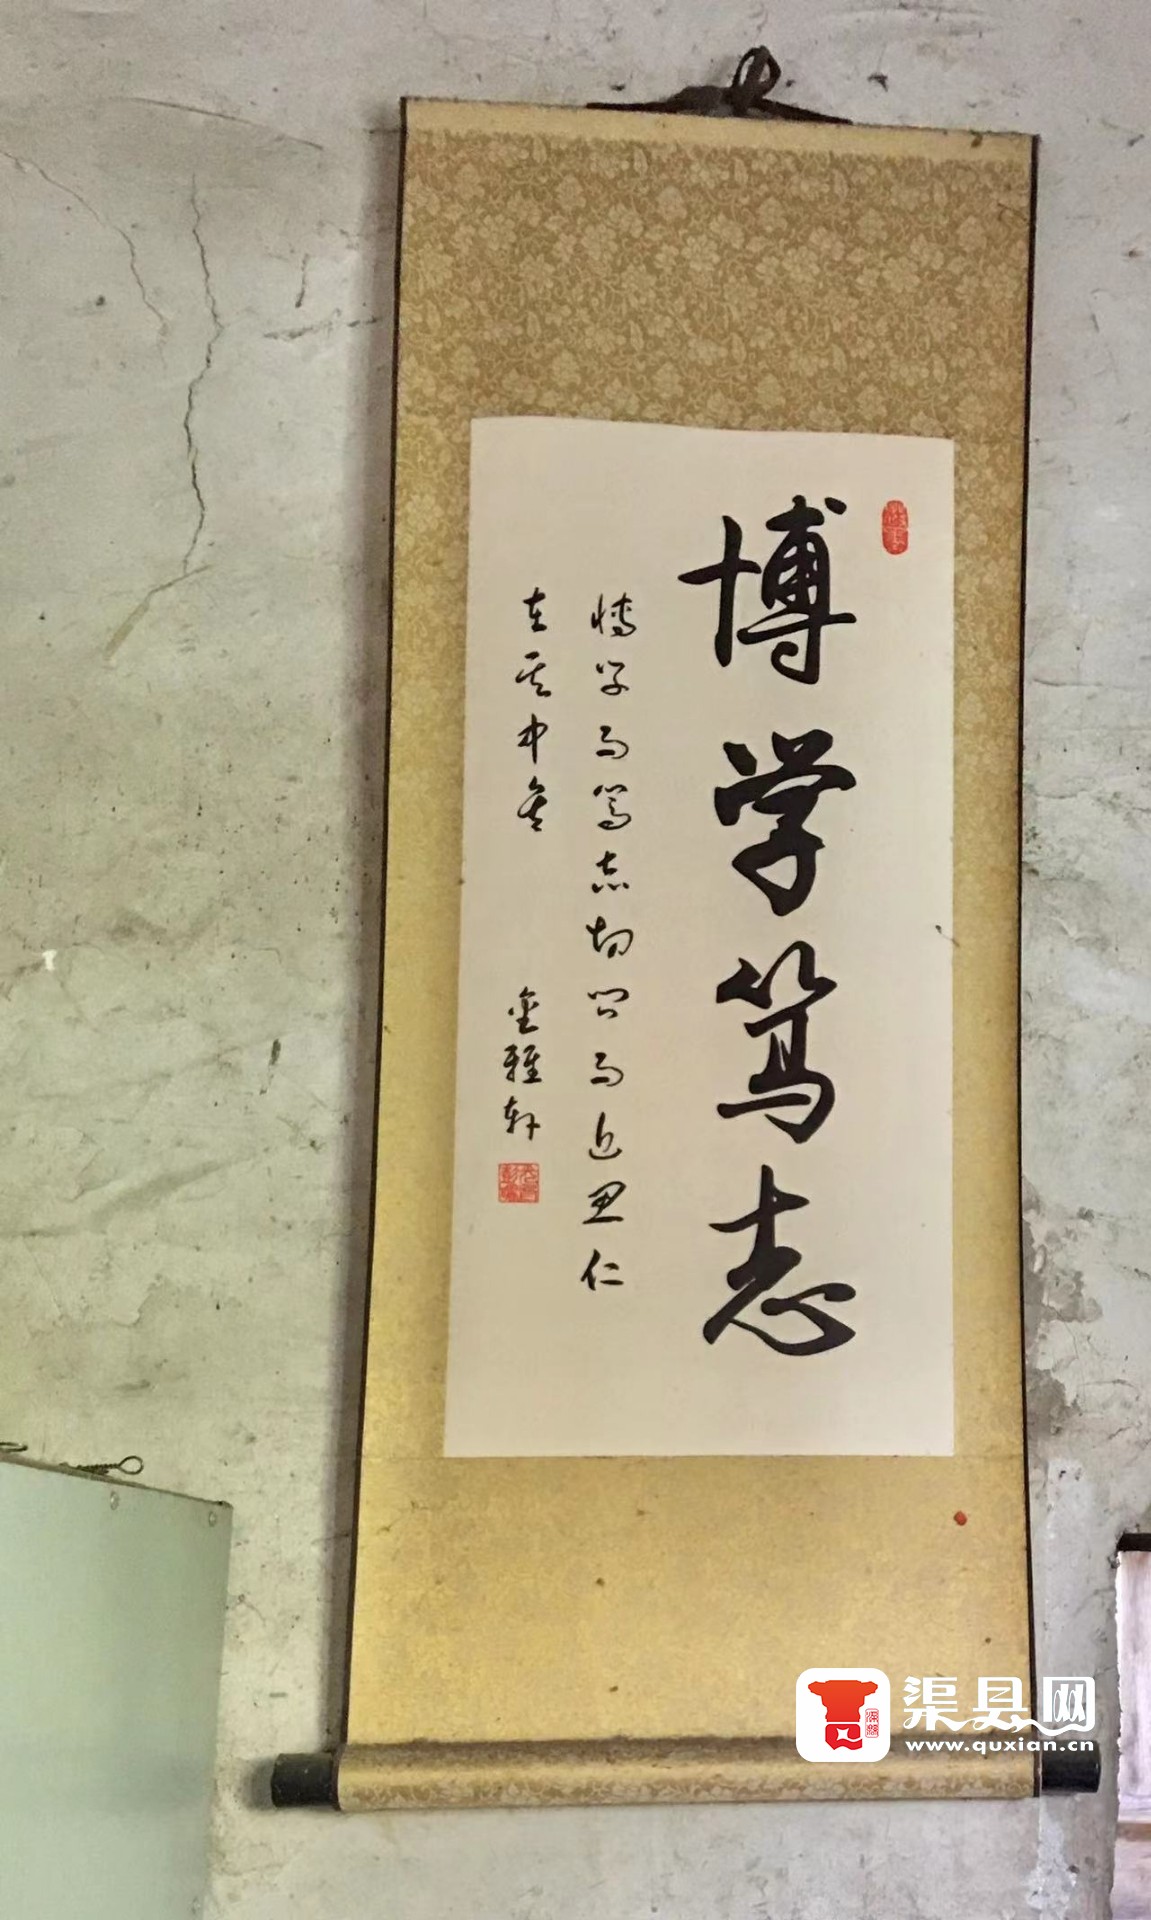 博学笃志
博学而笃志切问而近思仁
在其中矣
金雅轩
渠县网
www.quxian.cn